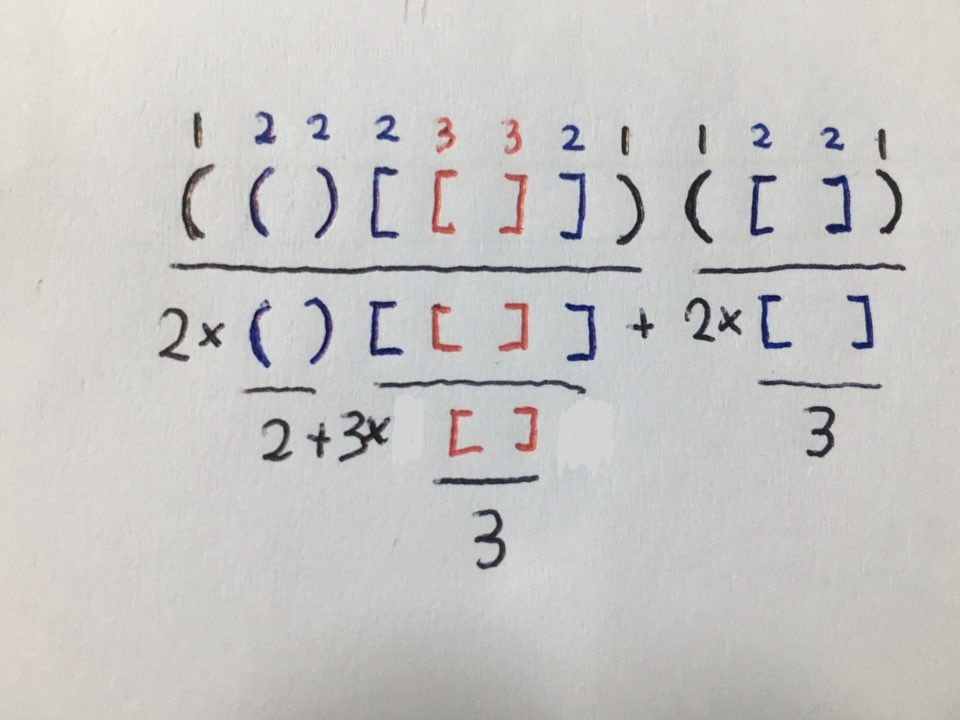 1 2 2 2 3 3 2 1 1 2 2 1
( ( ) [ [ ] ] ) ( [ ] )
2× ( ) [ [ ] ] + 2× [ ]
2+3× [ ] 3
3